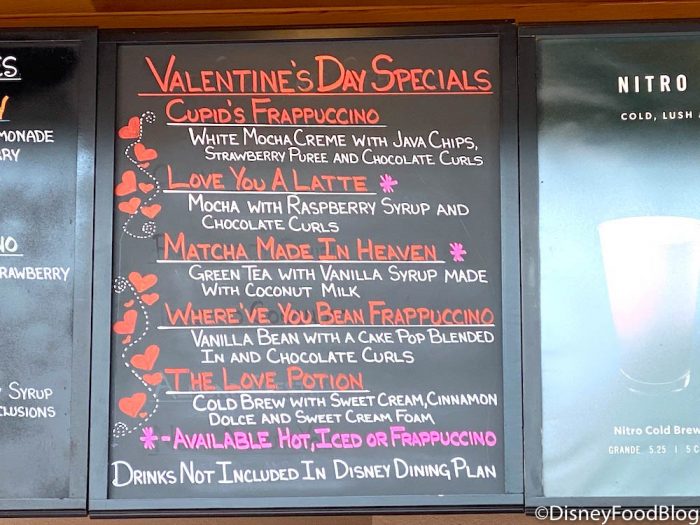 ES
MONADE
RY
NO
TRAWBERRY
SYRUP
CLUSIONS
VALENTINE'S DAY SPECIALS
CUPID'S FRAPPUCCINO
WHITE MOCHA CREME WITH JAVA CHIPS,
STRAWBERRY PUREE AND CHOCOLATE CURLS
LOVE YOU A LATTE *
MOCHA WITH RASPBERRY SYRUP AND
CHOCOLATE CURLS
MATCHA MADE IN HEAVEN *
GREEN TEA WITH VANILLA SYRUP MADE
WITH COCONUT MILK
WHERE'VE YOU BEAN FRAPPUCCINO
VANILLA BEAN WITH A CAKE POP BLENDED
IN AND CHOCOLATE CURLS
THE LOVE POTION
COLD BREW WITH SWEET CREAM, CINNAMON
DOLCE AND SWEET CREAM FOAM
*-AVAILABLE HOT, ICED OR FRAPPUCCINO
DRINKS NOT INCLUDED IN DISNEY DINING PLAN
NITRO
COLD, LUSH
Nitro Cold Brew
GRANDE 5.25 | 5 C
©DisneyFoodBlog